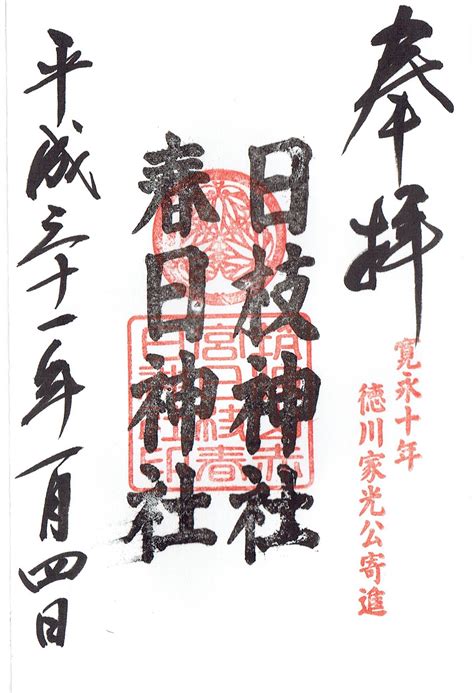 奉拝
寛永十年
徳川家光公寄進
日枝神社
春日神社
平成三十一年一月四日